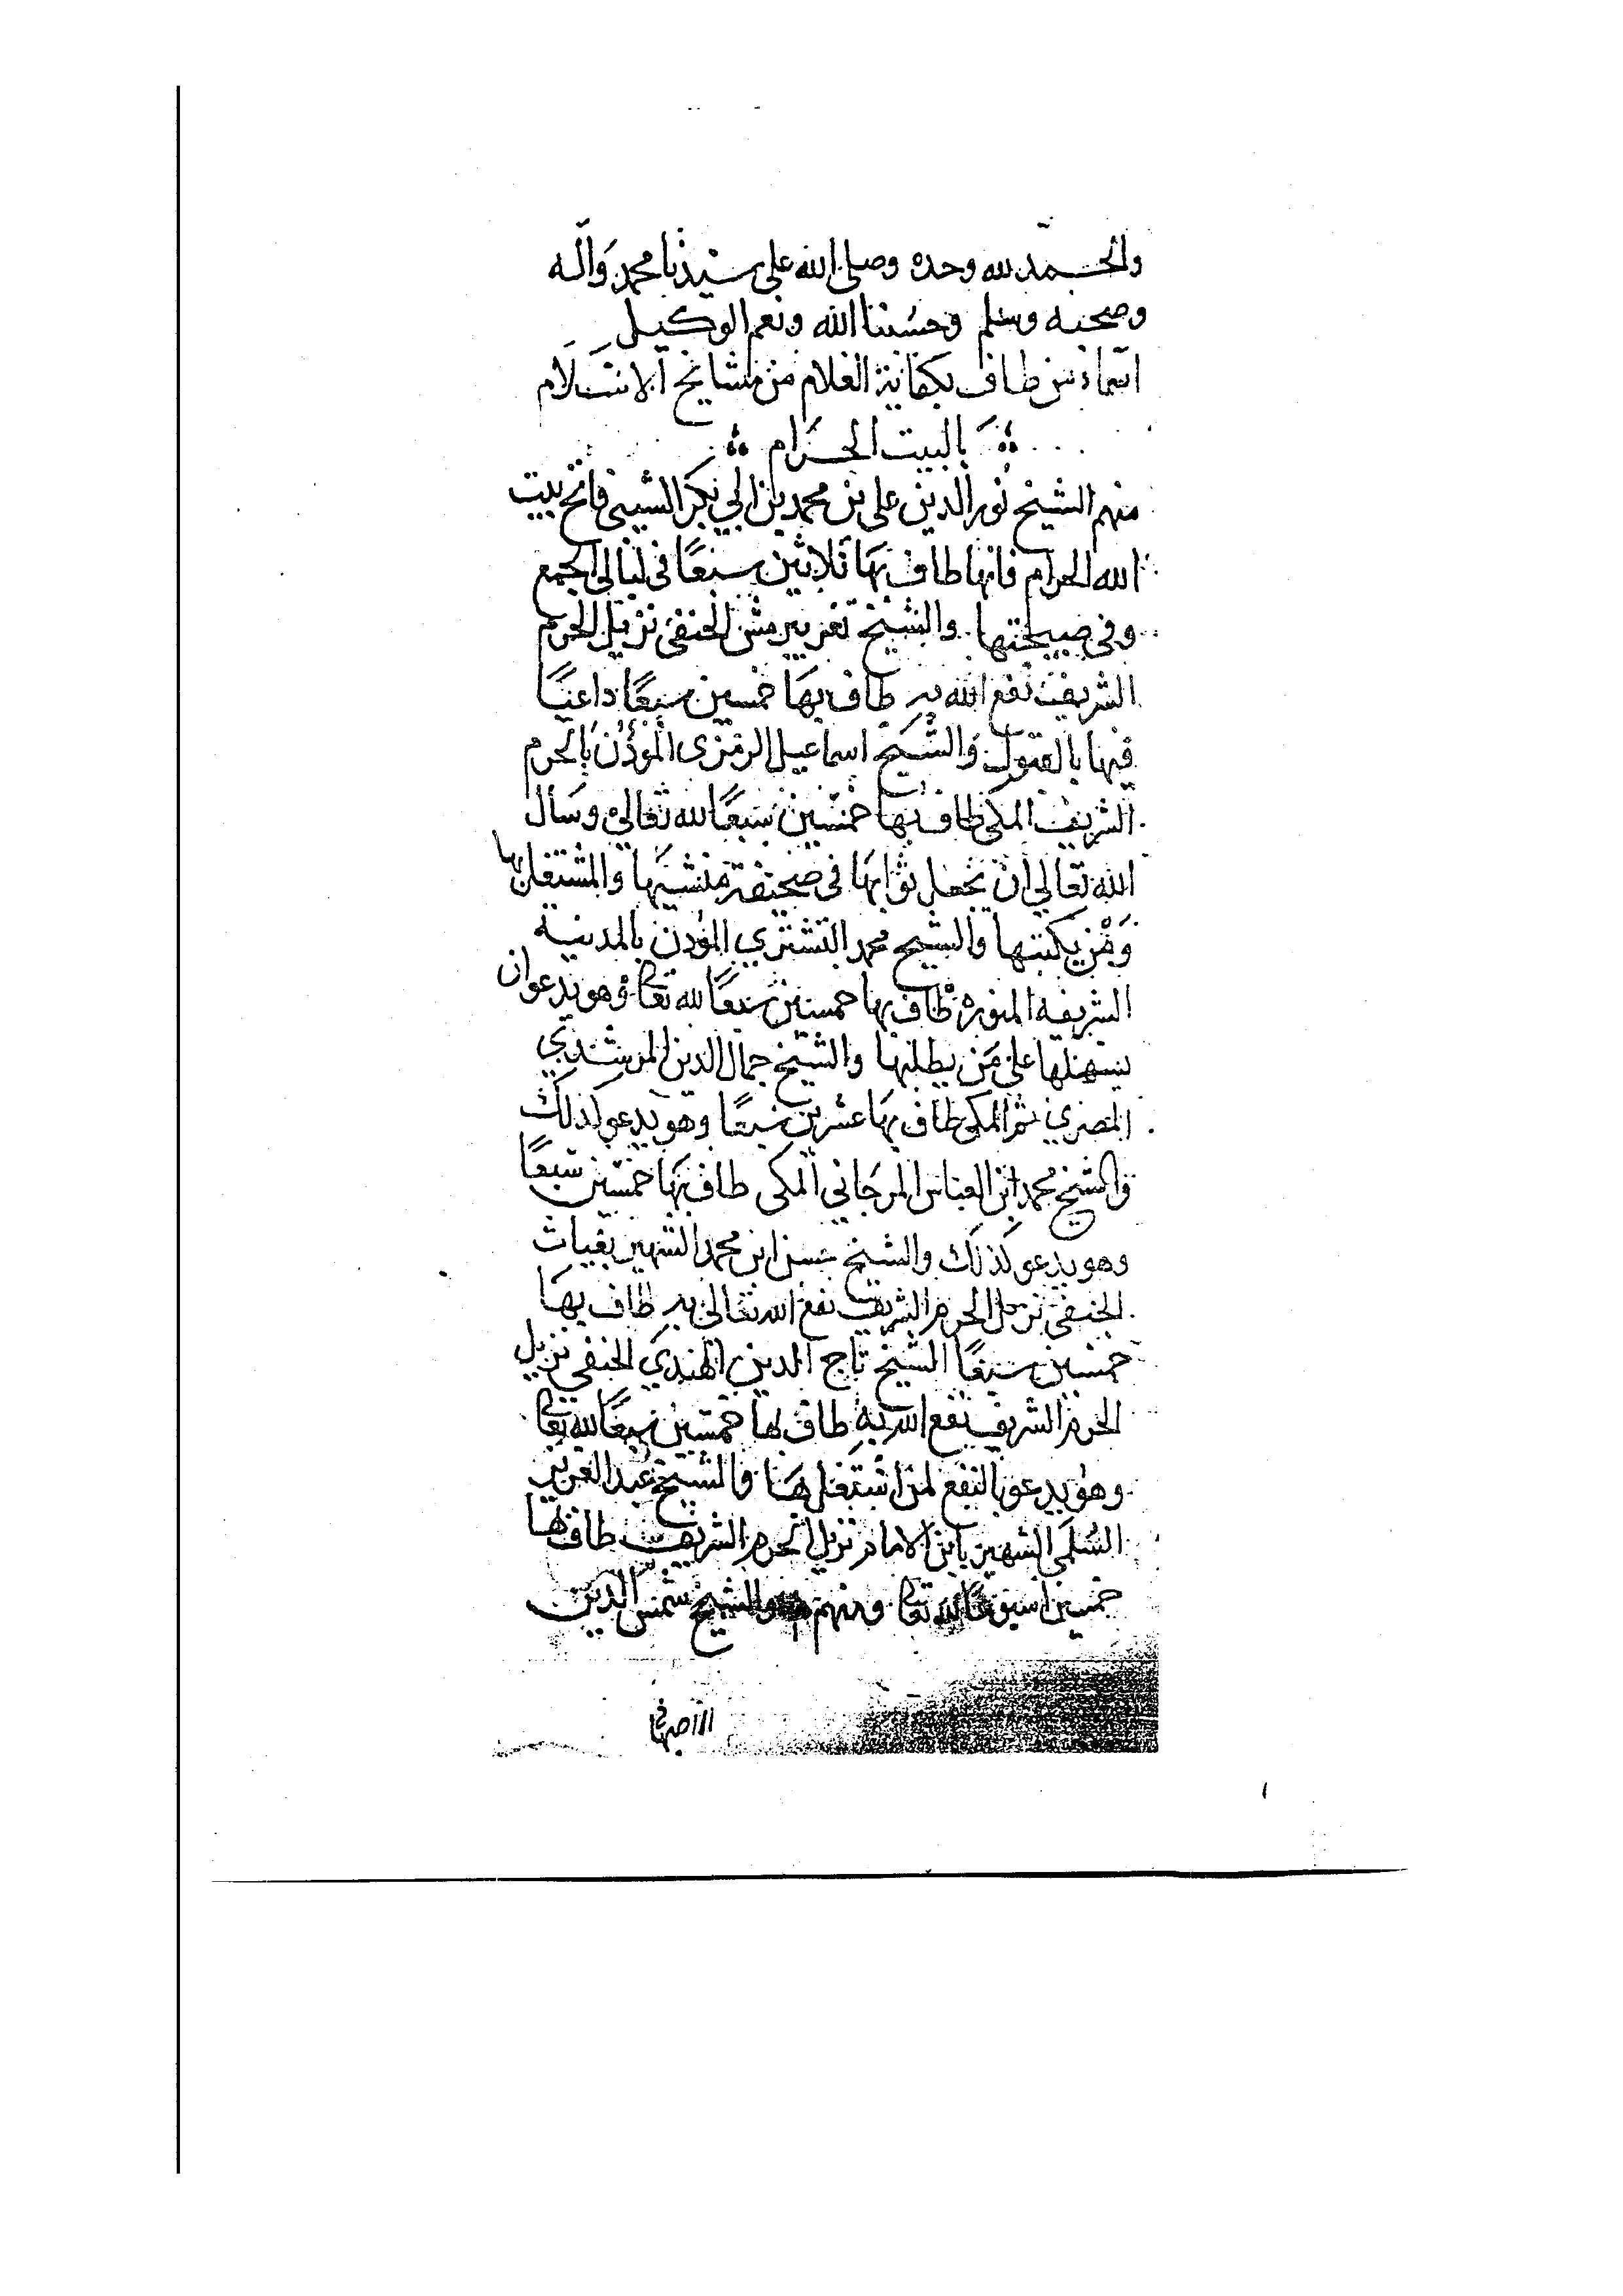 والحمد لله وحده وصلى الله على سيدنا محمد وآله
وصحبه وسلم وحسبنا الله ونعم الوكيل
اسماء من طاف بكفاية الغلام من مشايخ الاسلام
بالبيت الحرام
منهم الشيخ نور الدين على بن محمد بن ابي بكر الشيبى فاتح بيت
الله الحرام فانها طاف بها ثلاثين سبعًا فى ليالى الجمع
وفى صبيحتها والشيخ الحنفى نزيل الحرم
الشريف نفع الله به طاف بها خمسين سبعًا داعيًا
فيها بالقبول والشيخ اسماعيل الزمزى المؤذن بالحرم
الشريف المكى طاف بها خمسين سبعًا لله تعالى وسال
الله تعالى ان يجعل ثوابها فى صحيفة منشيها والمشتغل بها
ومن يكتبها والشيخ محمد التشتري المؤذن بالمدينه
الشريفه المنوره طاف بها خمسين سبعًا لله تعالى وهو يدعو ان
يسهلها على من يطلبها والشيخ جمال الدين المرشدي
المصري ثم المكى طاف بها عشرين سبعًا وهو يدعو كذلك
والشيخ محمد ابن العباس المرجاني المكى طاف بها خمسين سبعًا
وهو يدعو كذلك والشيخ حسن ابن محمد الشهير بغياث
الحنفى نزيل الحرم الشريف نفع الله تعالى به طاف بها
خمسين سبعًا الشيخ تاج الدين الهندي الحنفى نزيل
الحرم الشريف نفع الله به طاف بها خمسين سبعًا لله تعالى
وهو يدعو بالنفع لمن اشتغل بها والشيخ عبد العزيز
السُلمى الشهير بابن الامام نزيل الحرم الشريف طاف بها
خمسين اسبوعًا لله تعالى ومنهم والشيخ شمس الدين
الاصبهانى